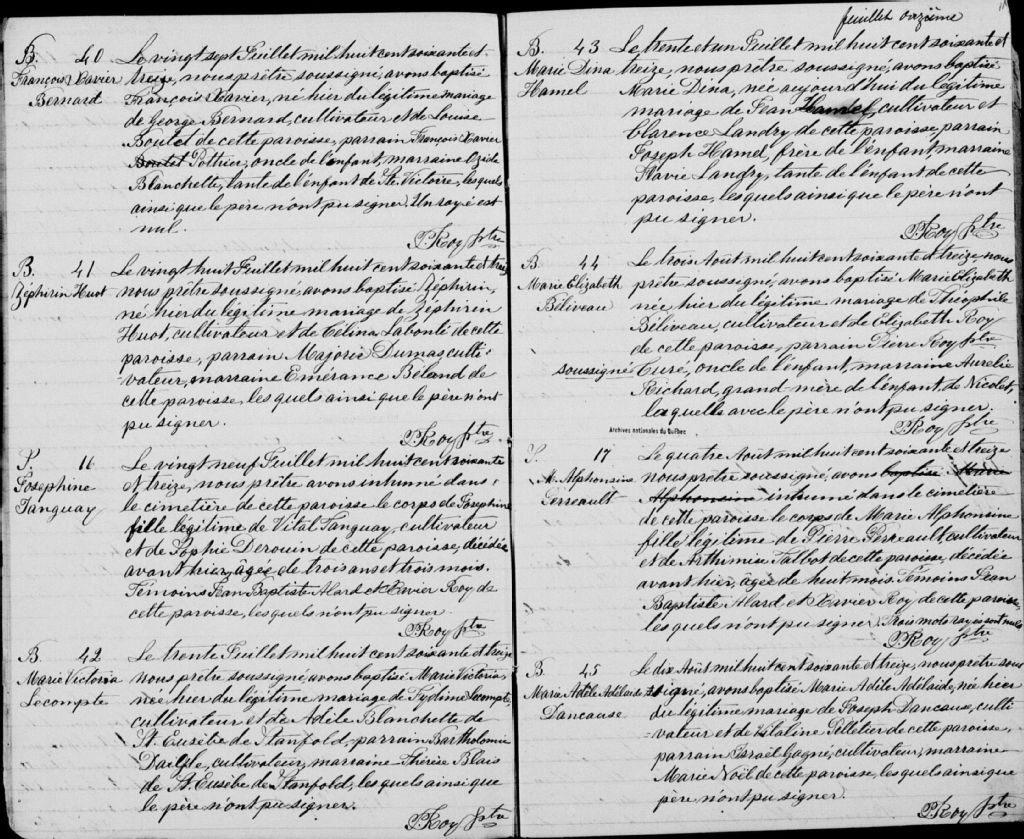 B. 40
François Xavier
Bernard
Le vingt sept Juillet mil huit cent soixante et
treize, nous prêtre soussigné, avons baptisé
François Xavier, né hier du légitime mariage
de George Bernard, cultivateur et de Louise
Boulet de cette paroisse, parrain François Xavier
Pothier, oncle de l'enfant, marraine Ozide
Blanchette, tante de l'enfant de Ste Victoire, lesquels
ainsi que le père n'ont pu signer. Un rayé est
nul.
P. Roy ptre
B. 41
Zéphirin Huot
Le vingt huit Juillet mil huit cent soixante et treize
nous prêtre soussigné, avons baptisé Zéphirin,
né hier du légitime mariage de Zéphirin
Huot, cultivateur et de Célina Labonté de cette
paroisse, parrain Majorie Dumas culti-
vateur, marraine Emérance Béland de
cette paroisse, lesquels ainsi que le père n'ont
pu signer.
P. Roy ptre
S. 16
Josephine
Tanguay
Le vingt neuf Juillet mil huit cent soixante
et treize, nous prêtre avons inhumé dans
le cimetière de cette paroisse le corps de Josephine
fille légitime de Vital Tanguay, cultivateur
et de Sophie Derouin de cette paroisse, décédée
avant hier, âgée de trois ans et trois mois.
Témoins Jean Baptiste Alard et Xavier Roy de
cette paroisse, lesquels n'ont pu signer.
P. Roy ptre
B. 42
Marie Victoria
Lecompte
Le trente Juillet mil huit cent soixante et treize
nous prêtre soussigné, avons baptisé Marie Victoria,
née hier du légitime mariage de Lecompte,
cultivateur et de Adèle Blanchette de
St. Eusèbe de Stanfold, parrain Bartholomie
cultivateur, marraine Thérèse Blais
de St. Eusèbe de Stanfold, lesquels ainsi que
le père n'ont pu signer.
P. Roy ptre
feuillet onzième
B. 43
Marie Dina
Hamel
Le trente et un Juillet mil huit cent soixante et
treize, nous prêtre soussigné, avons baptisé
Marie Dina, née aujourd'hui du légitime
mariage de Jean Hamel, cultivateur et
Clarence Landry de cette paroisse, parrain
Joseph Hamel, frère de l'enfant, marraine
Flavie Landry, tante de l'enfant de cette
paroisse, lesquels ainsi que le père n'ont
pu signer.
P. Roy ptre
B. 44
Marie Elizabeth
Béliveau
Le trois Août mil huit cent soixante et treize, nous
prêtre soussigné, avons baptisé Marie Elizabeth
née hier du légitime mariage de Théophile
Béliveau, cultivateur et de Elizabeth Roy
de cette paroisse, parrain Pierre Roy ptre
soussigné Curé, oncle de l'enfant, marraine Aurelie
Richard, grand-mère de l'enfant, de Nicolet,
laquelle avec le père n'ont pu signer.
P. Roy ptre
Archives nationales du Québec
S. 17
M. Alphonsine
Perreault
Le quatre Août mil huit cent soixante et treize
nous prêtre soussigné, avons baptisé Marie
Alphonsine inhumé dans le cimetière
de cette paroisse le corps de Marie Alphonsine
fille légitime de Pierre Perreault cultivateur
et de Arthimise Talbot de cette paroisse, décédée
avant hier, âgée de huit mois. Témoins Jean
Baptiste Alard, et Xavier Roy de cette paroisse,
lesquels n'ont pu signer. Trois mots rayés sont nuls
P. Roy ptre
B. 45
Marie Adèle Adélaïde
Dancause
Le dix Août mil huit cent soixante et treize, nous prêtre sous
signé, avons baptisé Marie Adèle Adélaïde, née hier
du légitime mariage de Joseph Dancause, culti-
vateur et de Pelletier de cette paroisse,
parrain Israël Gagné, cultivateur, marraine
Marie Noël de cette paroisse, lesquels ainsi que
père, n'ont pu signer.
P. Roy ptre